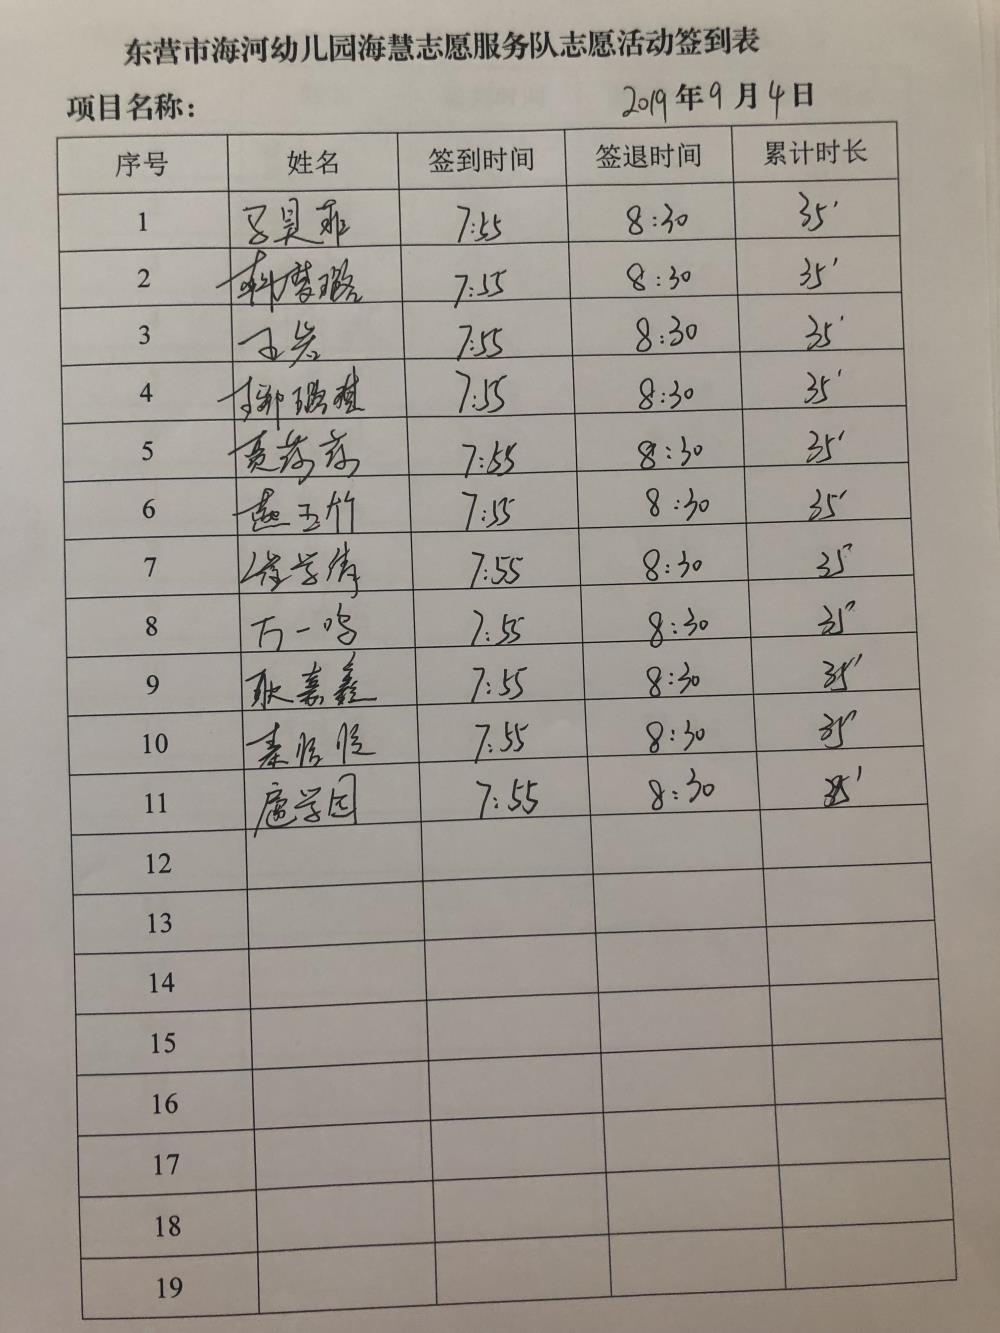 东营市海河幼儿园海慧志愿服务队志愿活动签到表
项目名称： 2019年9月4日
序号 姓名 签到时间 签退时间 累计时长
1 7:55 8:30 35'
2 7:55 8:30 35'
3 王岩 7:55 8:30 35'
4 7:55 8:30 35'
5 7:55 8:30 35'
6 燕玉竹 7:55 8:30 35'
7 崔学倩 7:55 8:30 35'
8 万一鸣 7:55 8:30 35'
9 耿嘉鑫 7:55 8:30 35'
10 秦临临 7:55 8:30 35'
11 扈学园 7:55 8:30 35'
12
13
14
15
16
17
18
19